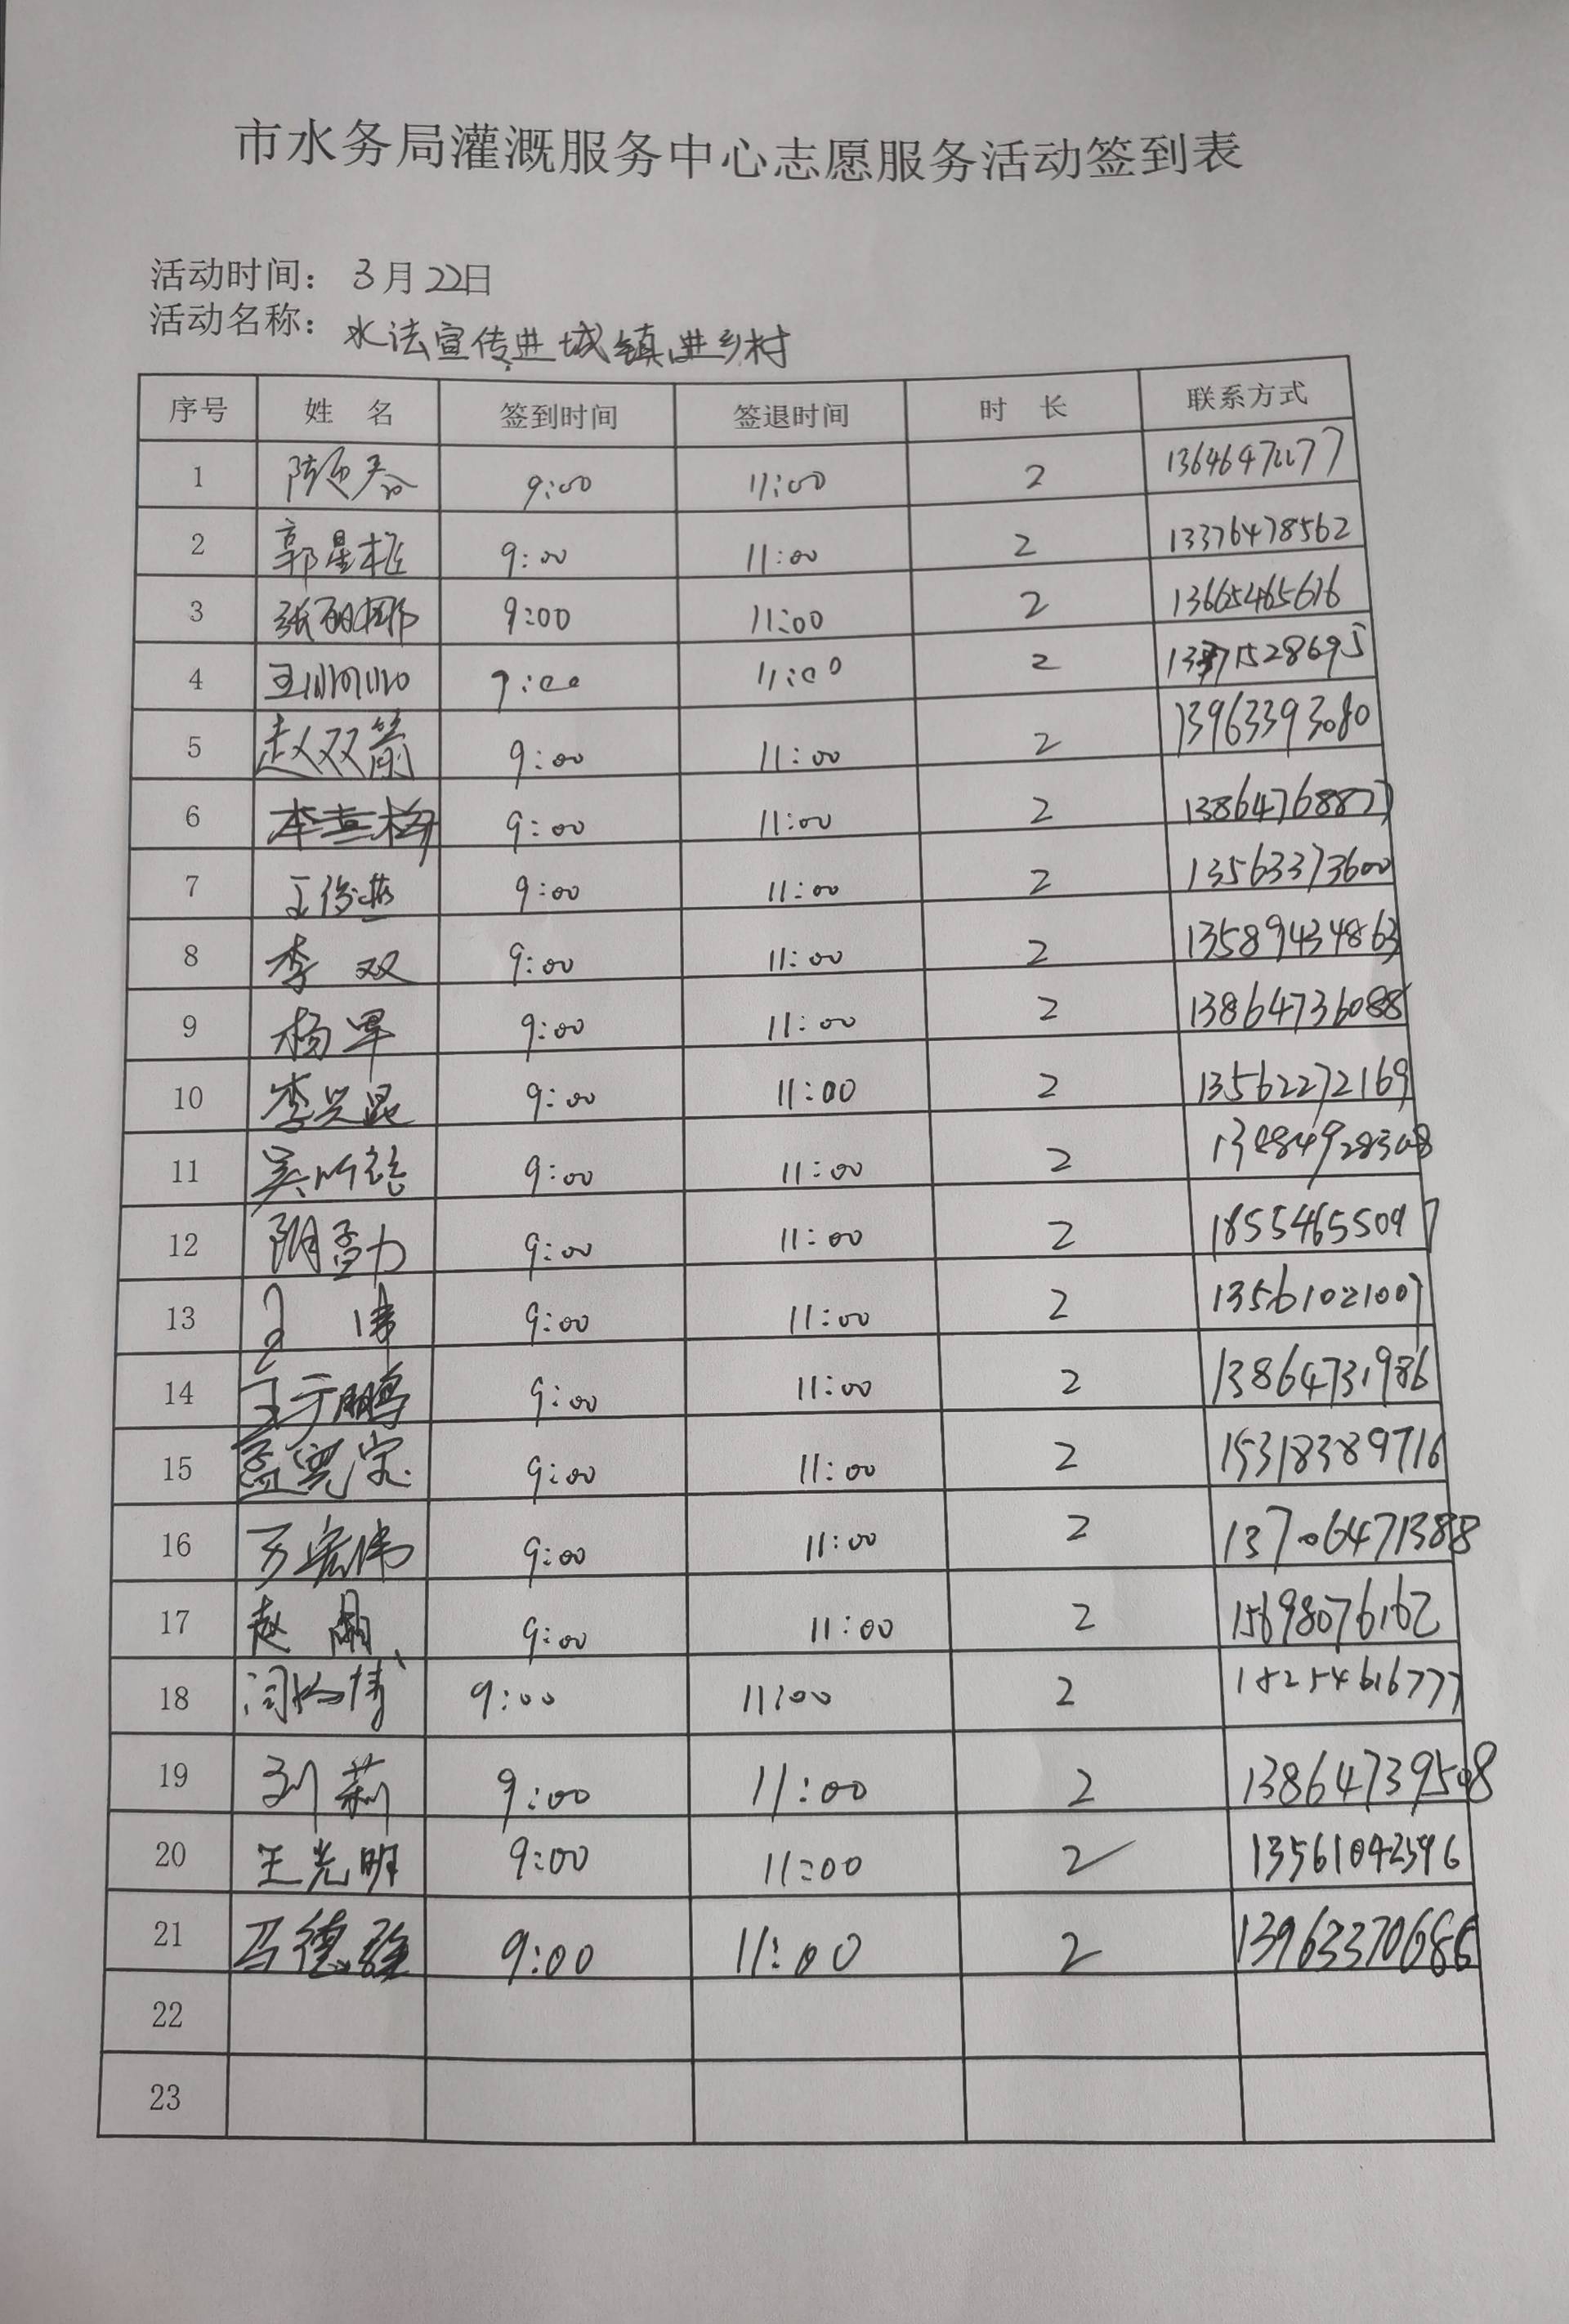 市水务局灌溉服务中心志愿服务活动签到表
活动时间：3月22日
活动名称：水法宣传进城镇进乡村
序号 姓 名 签到时间 签退时间 时 长 联系方式
1 9:00 11:00 2
2 郭星 9:00 11:00 2 13376478562
3 张丽娜 9:00 11:00 2 13665465616
4 9:00 11:00 2
5 赵双箭 9:00 11:00 2 13963393080
6 9:00 11:00 2 13864768877
7 9:00 11:00 2 13563373600
8 李 双 9:00 11:00 2 13589434863
9 杨军 9:00 11:00 2 13864736088
10 李兴昆 9:00 11:00 2 13562272169
11 9:00 11:00 2
12 9:00 11:00 2 18554655097
13 9:00 11:00 2 13561021007
14 鹏 9:00 11:00 2 13864731986
15 孟宪宝 9:00 11:00 2 15318389716
16 宏伟 9:00 11:00 2 13706471388
17 赵 9:00 11:00 2 15698076162
18 9:00 11:00 2 18254616777
19 刘莉 9:00 11:00 2 13864739508
20 王光明 9:00 11:00 2 13561042596
21 马德强 9:00 11:00 2 13963370686
22
23